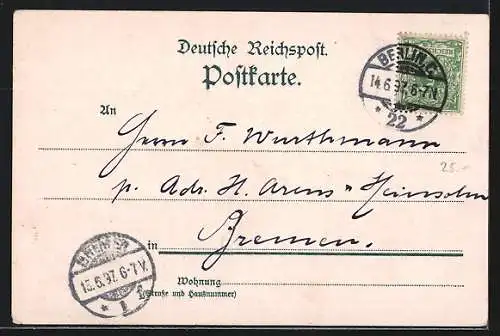 Deutsche Reichspost.
Postkarte.
BERLIN, C.
14.6.97. 6-7N.
* 22 *
An
Herrn F. Wurthmann
p. Adr. H. Arens
25.-
in Bremen.
BREMEN
15.6.97. 6-7.V.
* 1
Wohnung
(Straße und Hausnummer)